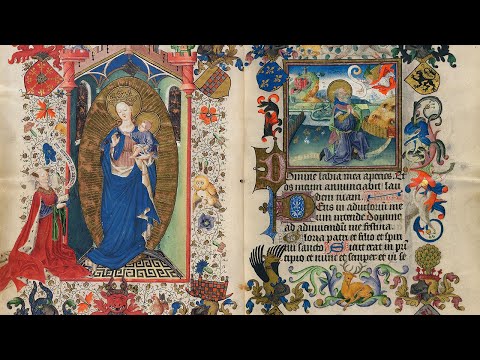 Domine labia mea aperies. Et
os meum annunciabit lau
dem tuam.
Deus in adiutoriū me
um intende domine
ad adiuvandū me festina.
Gloria patri et filio et spiri
tui sancto Sicut erat in prī
cipio et nunc et semper et in se